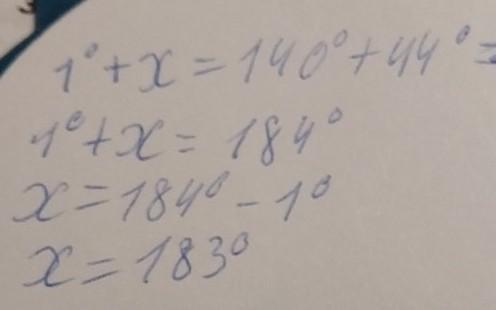 1° + x = 140° + 44° =
1° + x = 184°
x = 184° - 1°
x = 183°